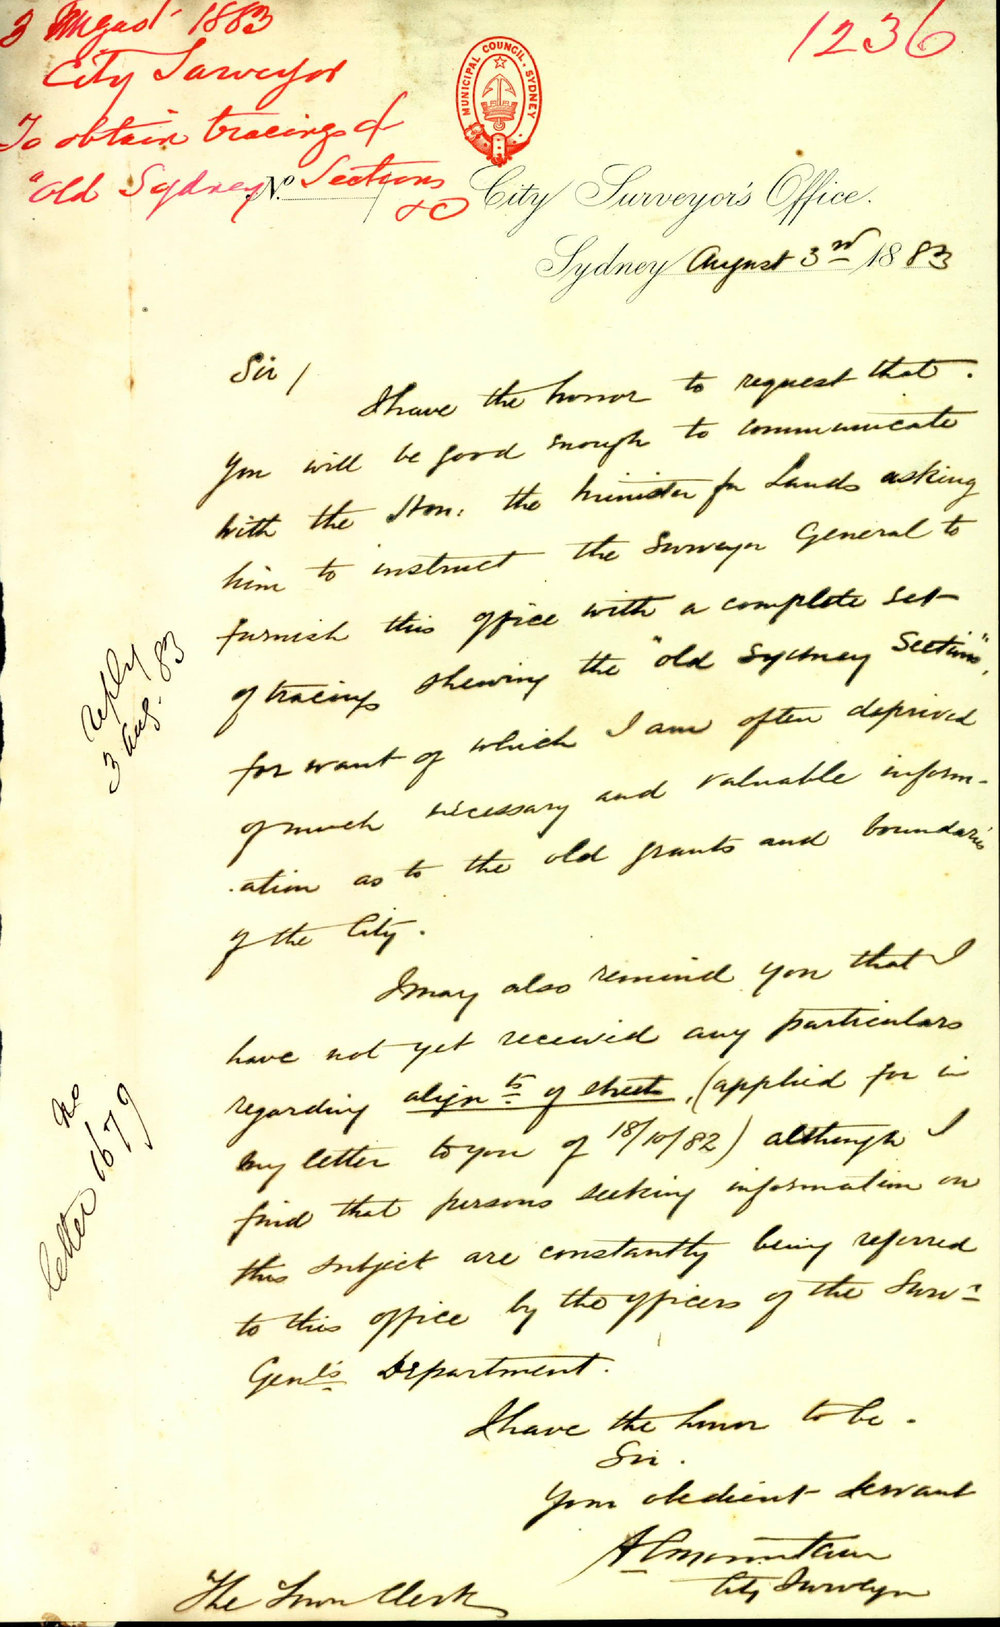 3 August 1883
City Surveyor
To obtain tracings of
"Old Sydney Sections
&c
1236
MUNICIPAL COUNCIL, SYDNEY
No.
City Surveyor's Office.
Sydney August 3rd 1883
Sir /
I have the honor to request that
you will be good enough to communicate
with the Hon: the Minister for Lands asking
him to instruct the Surveyor General to
furnish this office with a complete set
of tracings shewing the "old Sydney Sections",
for want of which I am often deprived
of much necessary and valuable inform-
ation as to the old grants and boundaries
of the City.
I may also remind you that I
have not yet received any particulars
regarding alignts of streets, (applied for in
my letter to you of 18/10/82) although I
find that persons seeking information on
this subject are constantly being referred
to this office by the officers of the Survr
Genl's Department.
I have the honor to be.
Sir.
Your obedient servant
A C Mountain
City Surveyor
The Town Clerk
reply
3 Aug. 83
No
letter 1679